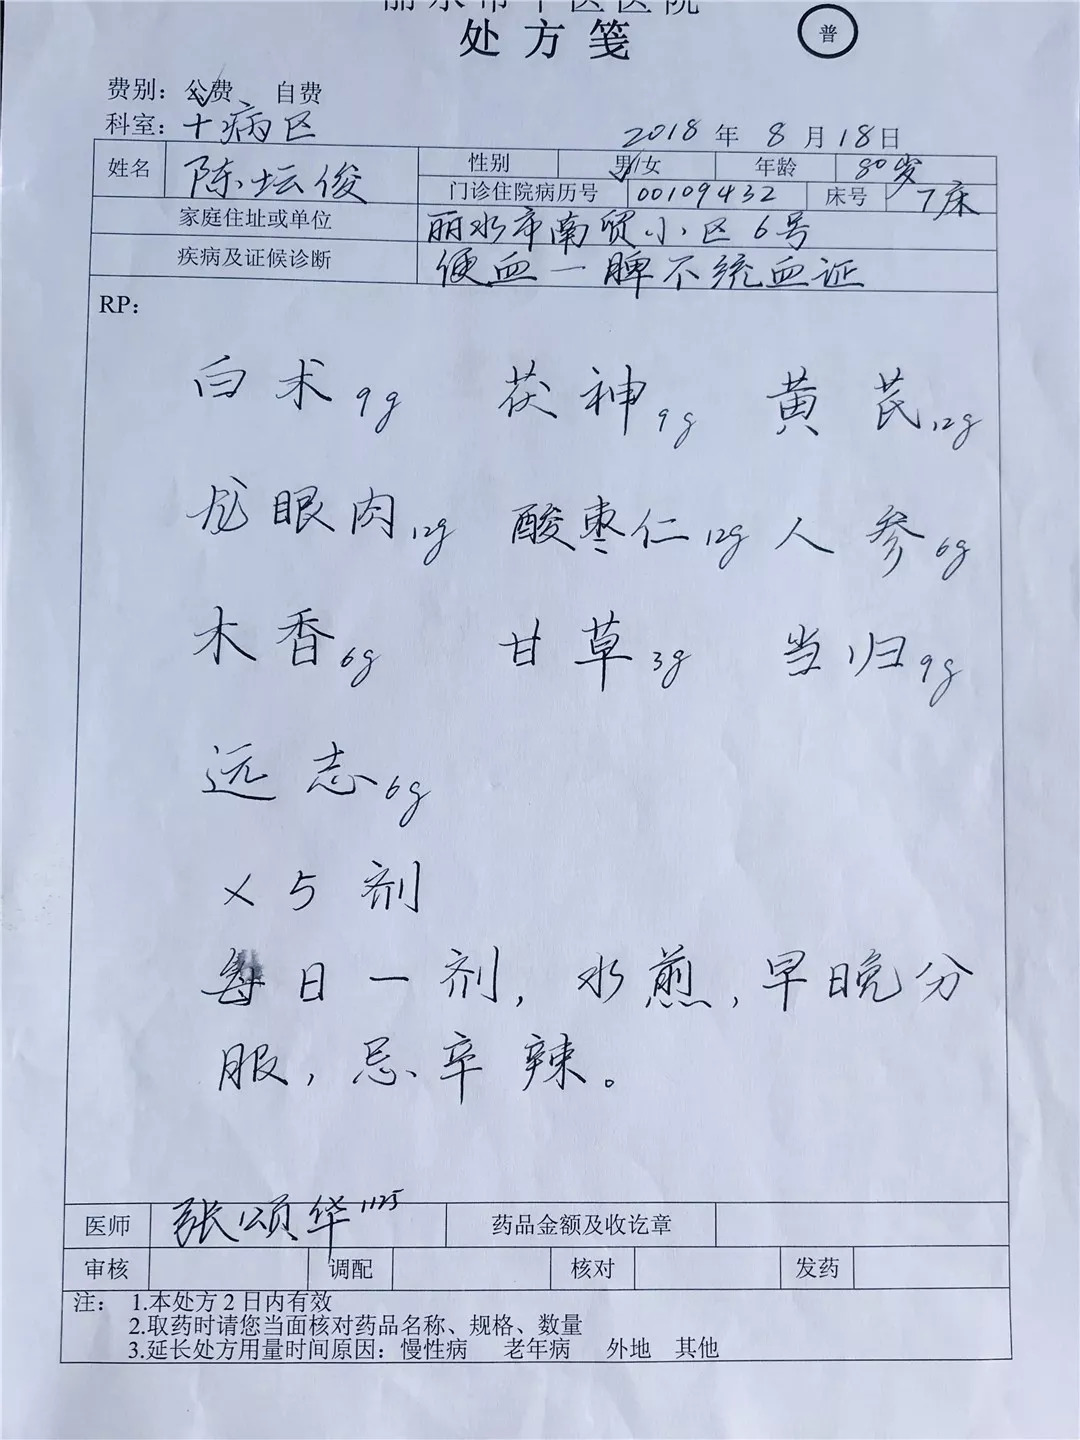 丽水市中医医院
处方笺
普
费别：公费 自费
科室：十病区
2018 年 8 月 18 日
姓名 陈坛俊 性别 男/女 年龄 80岁
门诊住院病历号 00109432 床号 7床
家庭住址或单位 丽水市南贸小区6号
疾病及证候诊断 便血—脾不统血证
RP：
白术9g 茯神9g 黄芪12g
龙眼肉12g 酸枣仁12g 人参6g
木香6g 甘草3g 当归9g
远志6g
×5剂
每日一剂，水煎，早晚分
服，忌辛辣。
医师 张颂华1125 药品金额及收讫章
审核 调配 核对 发药
注： 1.本处方 2 日内有效
2.取药时请您当面核对药品名称、规格、数量
3.延长处方用量时间原因：慢性病 老年病 外地 其他